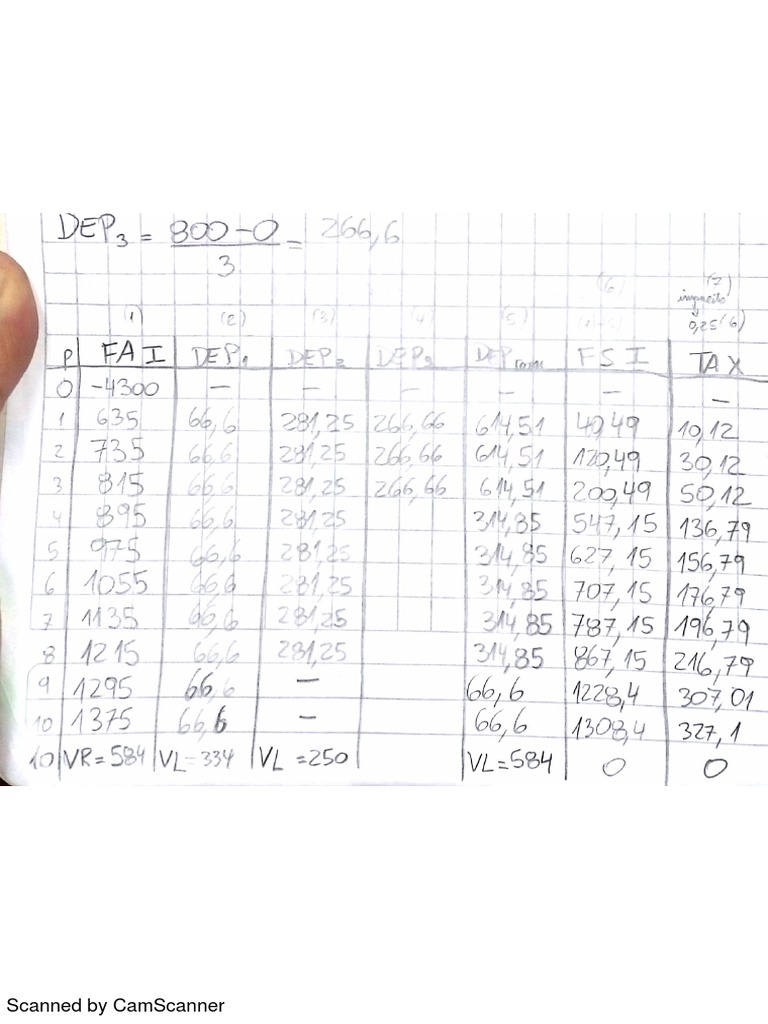 DEP₃ = 800-0 = 266,6
3
(6) (7)
impuesto
(1) (2) (3) (4) (5) 0,25(6)
P FAI DEP₁ DEP₂ DEP₃ DEP FSI TAX
0 -4300 — — — — —
1 635 66,6 281,25 266,66 614,51 40,49 10,12
2 735 66,6 281,25 266,66 614,51 120,49 30,12
3 815 66,6 281,25 266,66 614,51 200,49 50,12
4 895 66,6 281,25 314,85 547,15 136,79
5 975 66,6 281,25 314,85 627,15 156,79
6 1055 66,6 281,25 314,85 707,15 176,79
7 1135 66,6 281,25 314,85 787,15 196,79
8 1215 66,6 281,25 314,85 867,15 216,79
9 1295 66,6 — 66,6 1228,4 307,01
10 1375 66,6 — 66,6 1308,4 327,1
10 VR=584 VL=334 VL=250 VL=584 0 0
Scanned by CamScanner